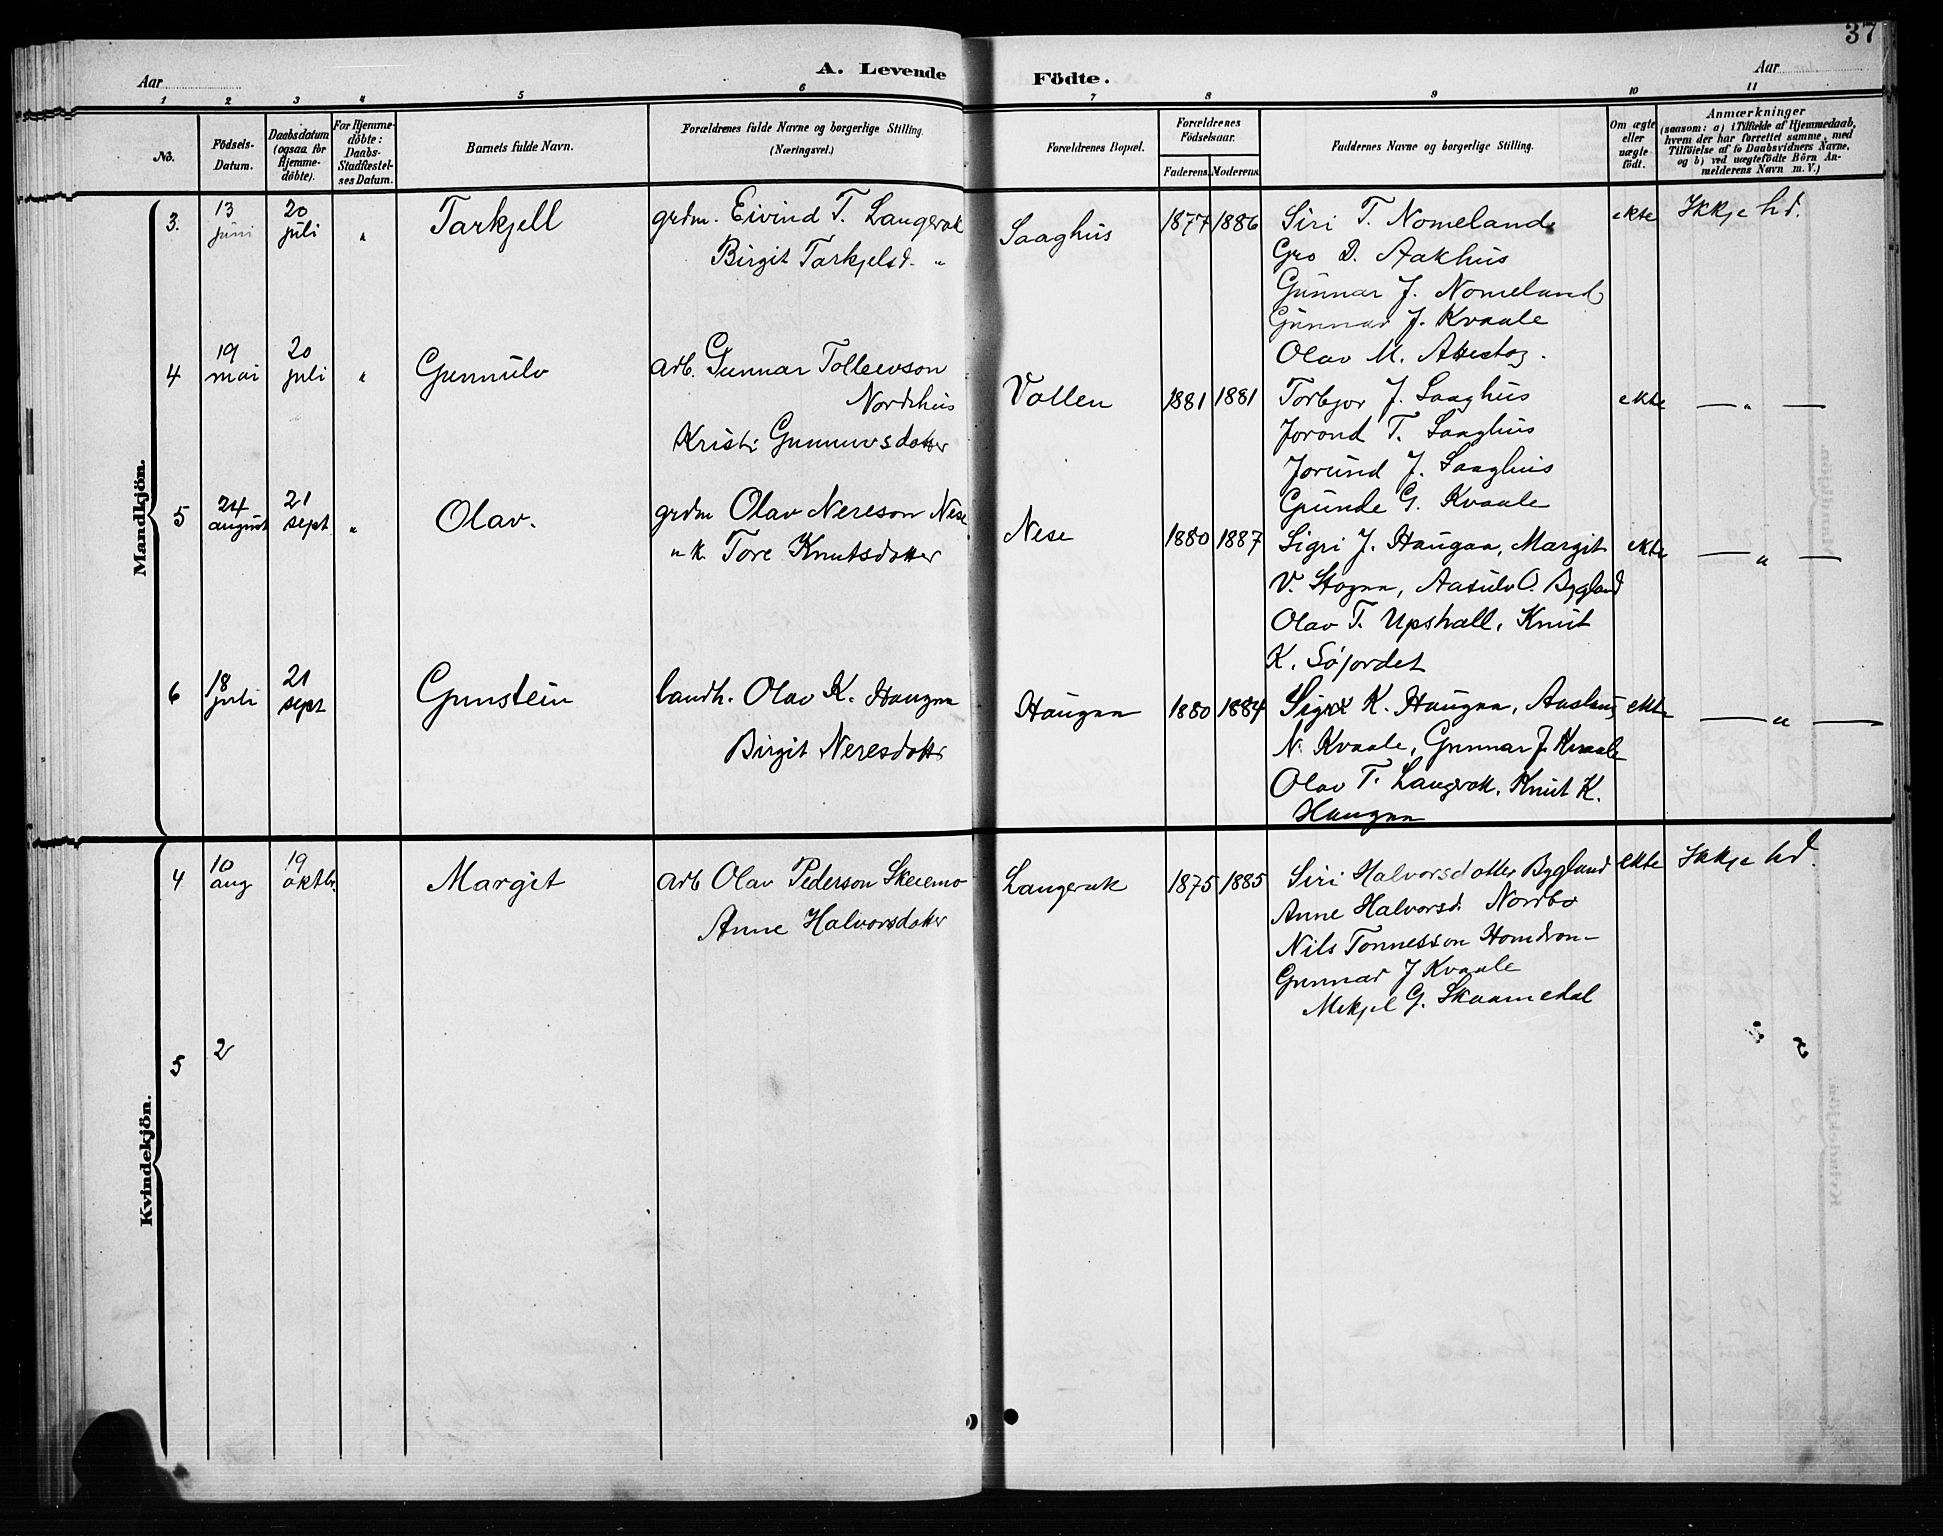 37
Aar
A. Levende
Födte.
Aar
1 2 3 4 5 6 7 8 9 10 11
No.
Födsels-Datum.
Daabsdatum (ogsaa for Hjemme-döbte).
For Hjemme-döbte: Daabs-Stadfestel-ses Datum.
Barnets fulde Navn.
Forældrenes fulde Navne og borgerlige Stilling.
(Næringsvei.)
Forældrenes Bopæl.
Forældrenes Födselsaar.
Faderens. Moderens.
Faddernes Navne og borgerlige Stilling.
Om ægte eller uægte födt.
Anmærkninger
(saasom: a) i Tilfælde af Hjemmedaab,
hvem der har forrettet samme, med
Tilföielse af to Daabsvidners Navne,
og b) ved uægtefödte Börn An-
melderens Navn m. V.)
Mandkjön.
3. 13 juni 20 juli " Tarkjell grdm. Eivind T. Langerak Saaghus 1877 1886 Siri T. Nomeland ekte Ikkje hd.
Birgit Tarkjelsd. " Gro D. Aakhus
Gunnar J. Nomeland
Gunnar J. Kvaale
Olav M.
4 19 mai 20 juli " Gunnulv arb. Gunnar Tollevson Vollen 1881 1881 Torbjor J. Saaghus ekte — " —
Nordhus Jorond T. Saaghus
Kristi Gunnuvsdotter Jorund J. Saaghus
Gunde G. Kvaale
5 24 august 21 sept " Olav. grdm Olav Nereson Nese Nese 1880 1887 Sigri J. Haugaa, Margit ekte — " —
" k. Tore Knutsdotter V. Stogaa, Aasulv O. Bygland
Olav T. Upstall, Knut
K. Söjordet
6 18 juli 21 sept Gunstein landh. Olav K. Haugaa Haugaa 1880 1884 K. Haugaa, Aaslaug ekte — " —
Birgit Neresdotter N. Kvaale, Gunnar J. Kvaale
Olav T. Langerak, Knut K.
Haugaa
Kvindekjön.
4 10 aug 19 oktbr. Margit arb Olav Pederson Skeiemo Langerak 1875 1885 Siri Halvorsdotter Bygland ekte Ikkje hd.
Anne Halvorsdotter Anne Halvorsd. Nordbo
Nils Tonnesson Homdrom
Gunnar J Kvaale
Mikjel G. Skaamedal
5 2